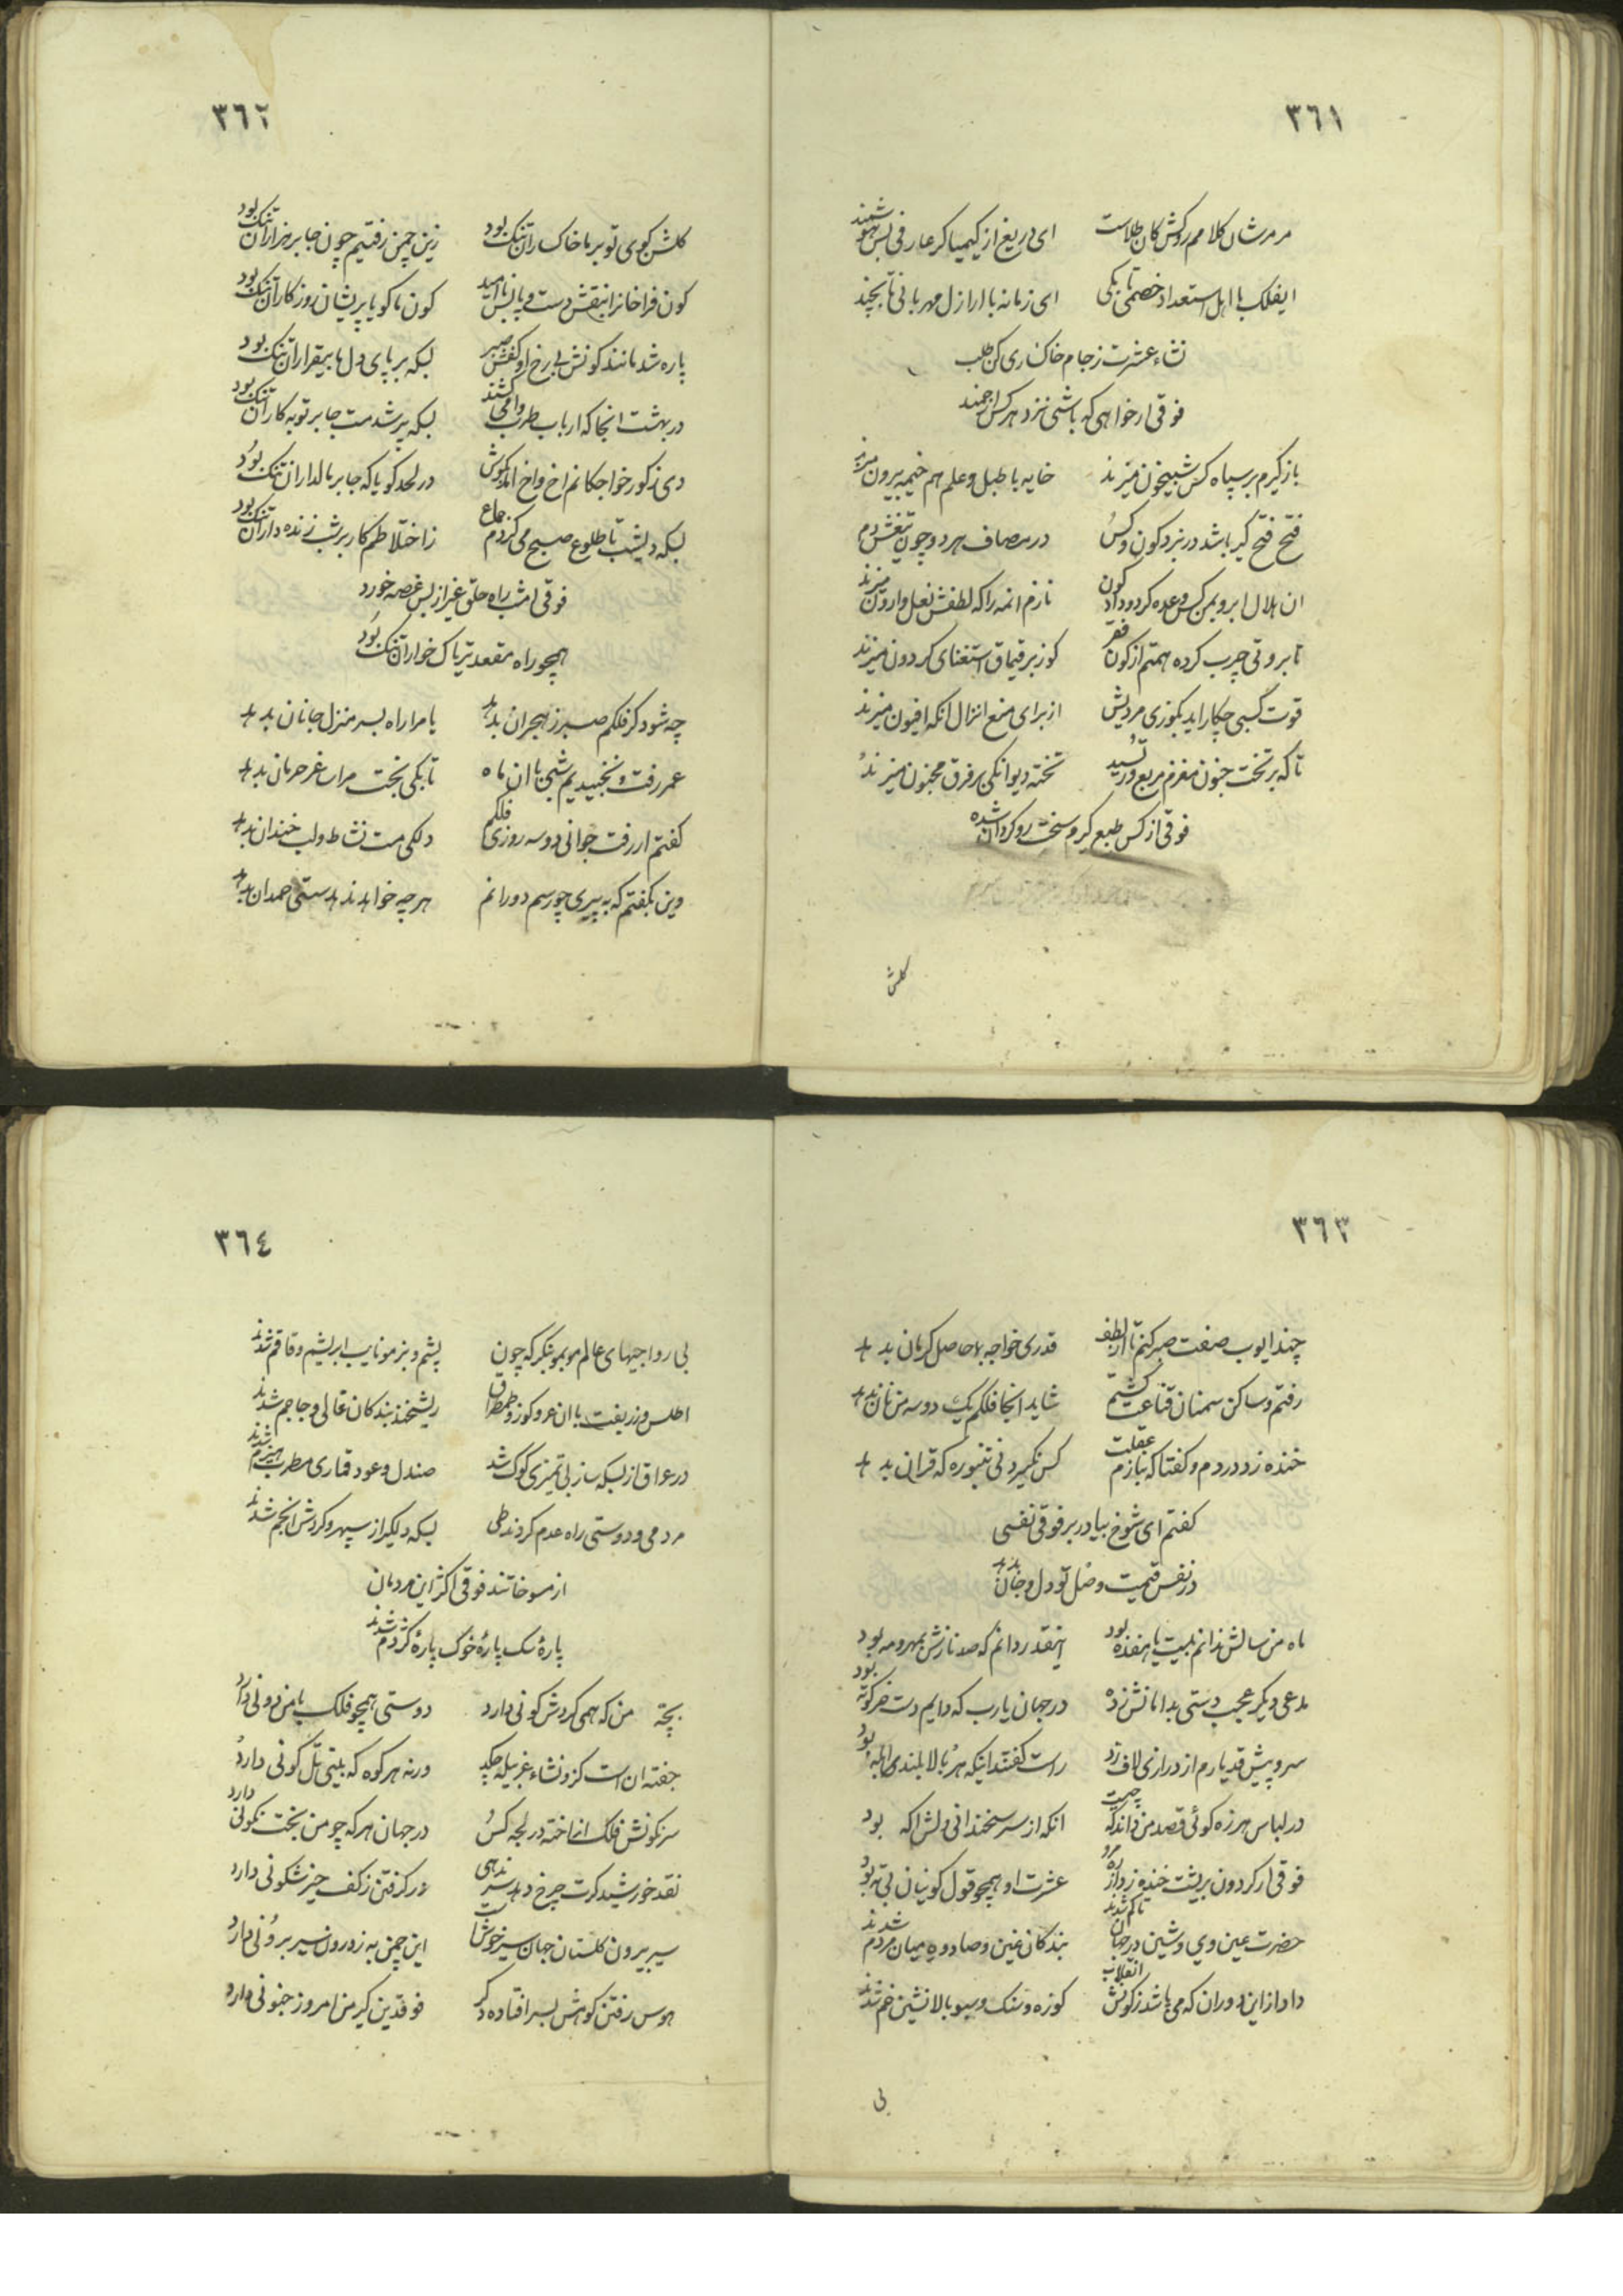 ٣٦١
مرمرشان کلامم روکش کان طلاست ای دریغ از کیمیاکر عارفی بس هوشمند
ایفلک با اهل استعداد خصمی تا بکی ای زمانه با ارازل مهربانی تا بچند
نشاء عشرت ز جام خاکساری کن طلب
فوقی ار خواهی که باشی نزد هر کس ارجمند
باز کیرم بر سپاه کس شبیخون میزند خایه با طبل و علم هم خیمه بیرون میزند
فتح فتح کیر باشد در نبرد کون و کس در مصاف هر دو چون تیغش دم
ان هلال ابرو بمن کس وعده کرد و داد کون نازم انمه را که لطفش نعل وارون میزند
تا بروتی چرب کرده همتم از کون فقر کوز بر قیماق استغنای کردون میزند
قوت کسبی چکار اید بکوزی مردیش از برای منع انزال انکه افیون میزند
تا که بر تخت جنون مغزم مربع در رسید تخته دیوانکی بر فرق مجنون میزند
فوقی از کس طبع کیرم سخت رو کردان شده
کلش
٣٦٢
کلشن کوی تو بر ما خاکساران تنک بود زین چمن رفتیم چون جا بر هزاران تنک بود
کون فراخانرا بنقش دست و پا بس ناامید کون ما کویا پریشان روزکاران تنک بود
پاره شد مانند کونش بی رخ او کفش صبر بسکه بر پای دل ما بیقراران تنک بود
در بهشت انجا که ارباب طرب وامی کشند بسکه پر شد مست جا بر توبه کاران تنک بود
دی ز کور خواجکانم اخ و اخ امد بکوش در لحد کویا که جا بر مالداران تنک بود
بسکه دیشب تا طلوع صبح می کردم جماع ز اختلاطم کار بر شب زنده داران تنک بود
فوقی امشب راه حلق غیر از بس غصه خورد
همچو راه مقعد تریاک خواران تنک بود
چه شود کر فلکم صبر ز هجران بدهد یا مرا راه بسر منزل جانان بدهد
عمر رفت و نخبیدیم شبی با ان ماه تا بکی بخت مرا ساغر حرمان بدهد
کفتم ار رفت جوانی دو سه روزی فلکم دلکی مست نشاط و لب خندان بدهد
وین نکفتم که به پیری چو رسم دورانم هر چه خواهد ندهد سستی همدان بدهد
٣٦٣
چند ایوب صفت صبر کنم تا از لطف قدری خواجه ما حاصل کرمان بدهد
رفتم و ساکن سمنان قناعت کشتم شاید انجا فلکم یک دو سه من نان بدهد
خنده زد در دم و کفتا که بنازم عقلت کس نکیرد نی تنبوره که قران بدهد
کفتم ای شوخ بیا در بر فوقی نفسی
در نفس قیمت وصل تو دل و جان بدهد
ماه من سالش ندانم بیست یا هفده بود اینقدر دانم که صد نازش بمهر و مه بود
مدعی دیکر عجب دستی بدامانش زده در جهان یارب که دایم دست خر کوته بود
سرو پیش قد یارم از درازی لاف زد راست کفتند اینکه هر بالا بلندی ابله بود
در لباس هرزه کوئی قصد من داند که چیست انکه از سر سخندانی دلش اکه بود
فوقی ار کردون بریشت خنده زد از ره مرو عشرت او همچو قول کونیان بی ته بود
حضرت عین وی و شین در جهان تا کم شدند بندکان غین و صاد وه میان مردم شدند
داد از این دوران که می باشد ز کونش انقلاب کوزه و سنک و سبو بالانشین خم شدند
بی
٣٦٤
بی رواجیهای عالم مو بمو بنکر که چون پشم و بز مو نایب ابریشم و قاقم شدند
اطلس و زربفت با ان عر و کوز و طمطراق ریشخند بندکان غالی و جاجم شدند
در عراق از بسکه ساز بی تمیزی کوک شد صندل و عود قماری مطرب هیزم شدند
مردمی و دوستی راه عدم کردند طی بسکه دلکیر از سپهر و کردش انجم شدند
از مسوخاتند فوقی اکثر این مردمان
پارهٔ سک پارهٔ خوک پارهٔ کژدم شدند
بچهٔ من که همی کردش کونی دارد دوستی همچو فلک با من دونی دارد
جفته ان است کزو نشاء غربیله چکد ورنه هر کوه که بینی تل کونی دارد
سرنکونش فلک انداخته در لجه کس در جهان هر که چو من بخت نکونی دارد
نقد خورشید کرت چرخ دهد سر ندهی در کرفتن ز کف حیز شکونی دارد
سیر بیرون کلستان جهان سیر خوش است این چمن به ز درون سیر برونی دارد
هوس رفتن کوهش بسر افتاده دکر فوقدین کیر من امروز جنونی دارد